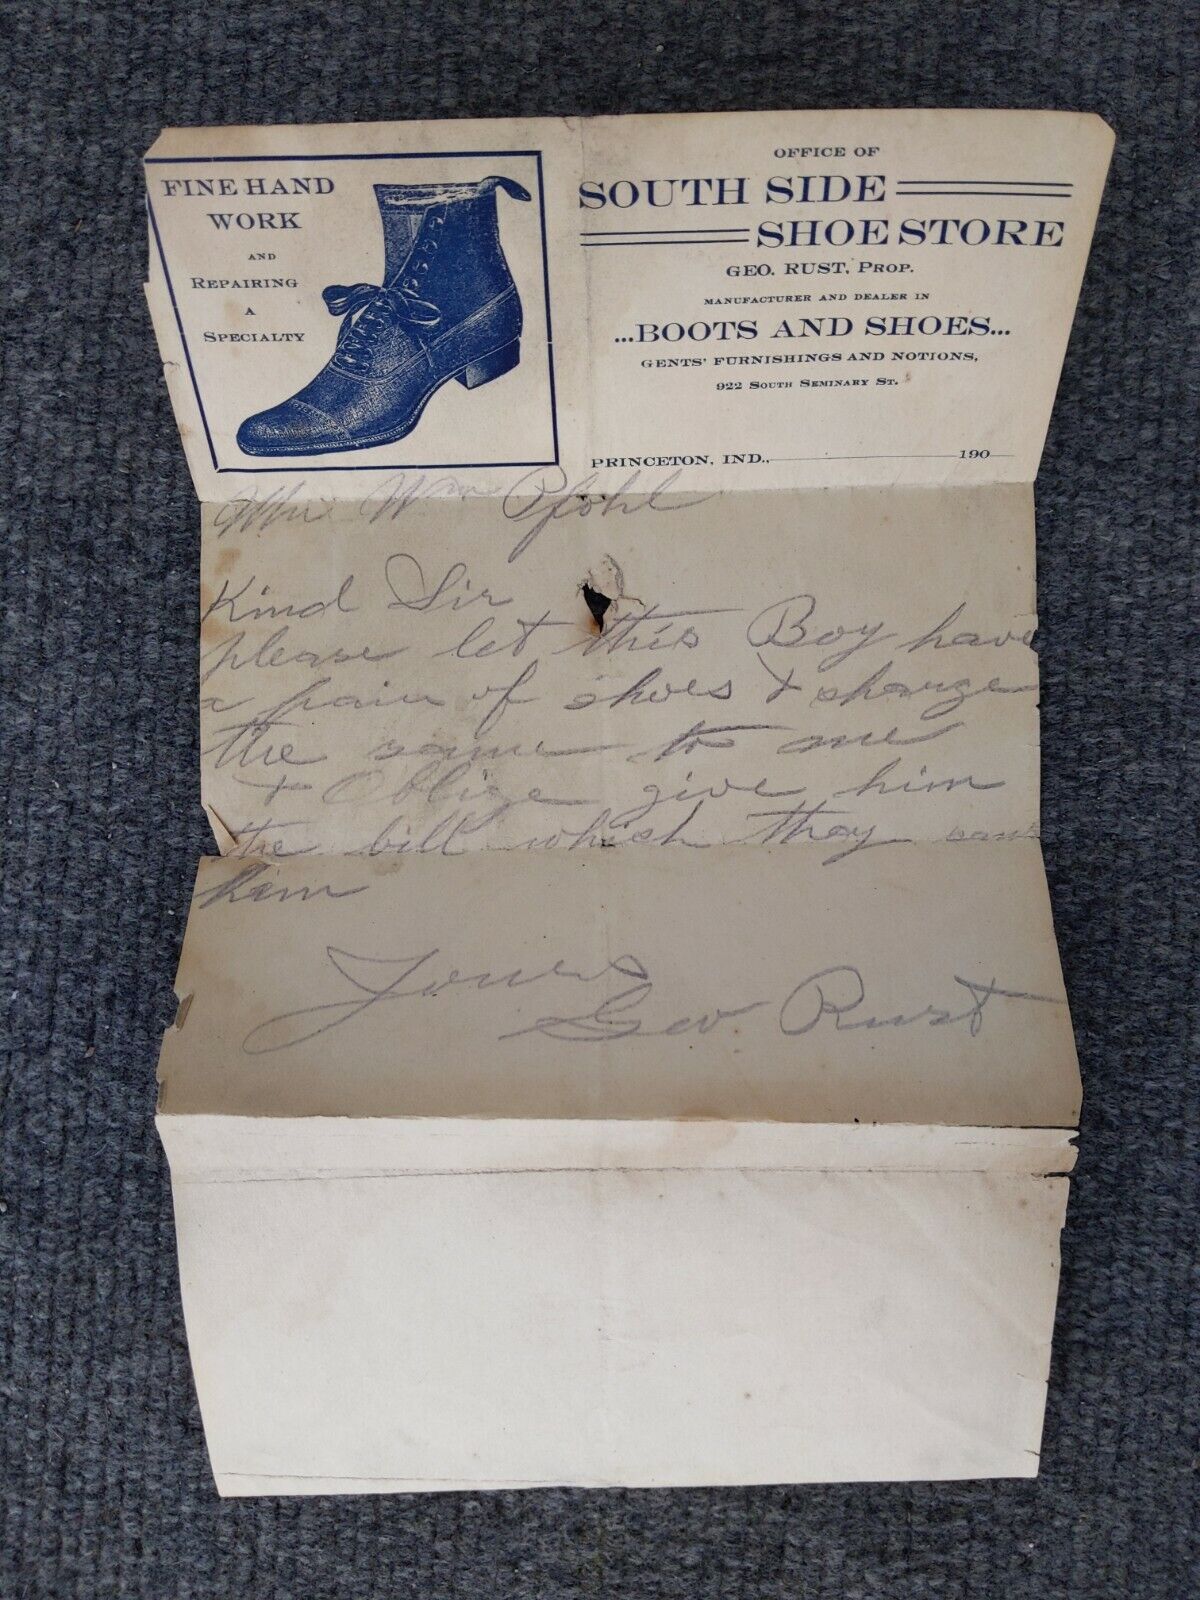 FINE HAND
WORK
AND
REPAIRING
A
SPECIALTY
OFFICE OF
SOUTH SIDE
SHOE STORE
GEO. RUST, PROP.
MANUFACTURER AND DEALER IN
...BOOTS AND SHOES...
GENTS' FURNISHINGS AND NOTIONS,
922 SOUTH SEMINARY ST.
PRINCETON, IND., 190
Mr Wm Pfohl
Kind Sir
please let this Boy have
a pair of shoes & charge
the same to me
& Oblige give him
the bill which they
him
Yours
Geo Rust